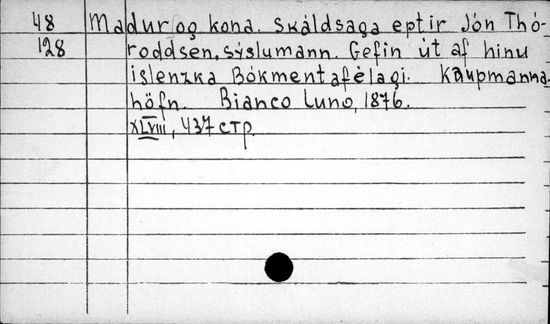 48 Madur og kona. Skáldsaga eptir Jón Thó-
128 roddsen, sýslumann. Gefin út af hinu
islenzka Bókmentafèlagi. Kaupmanna-
höfn. Bianco Luno, 1876.
XLVIII, 437 стр.